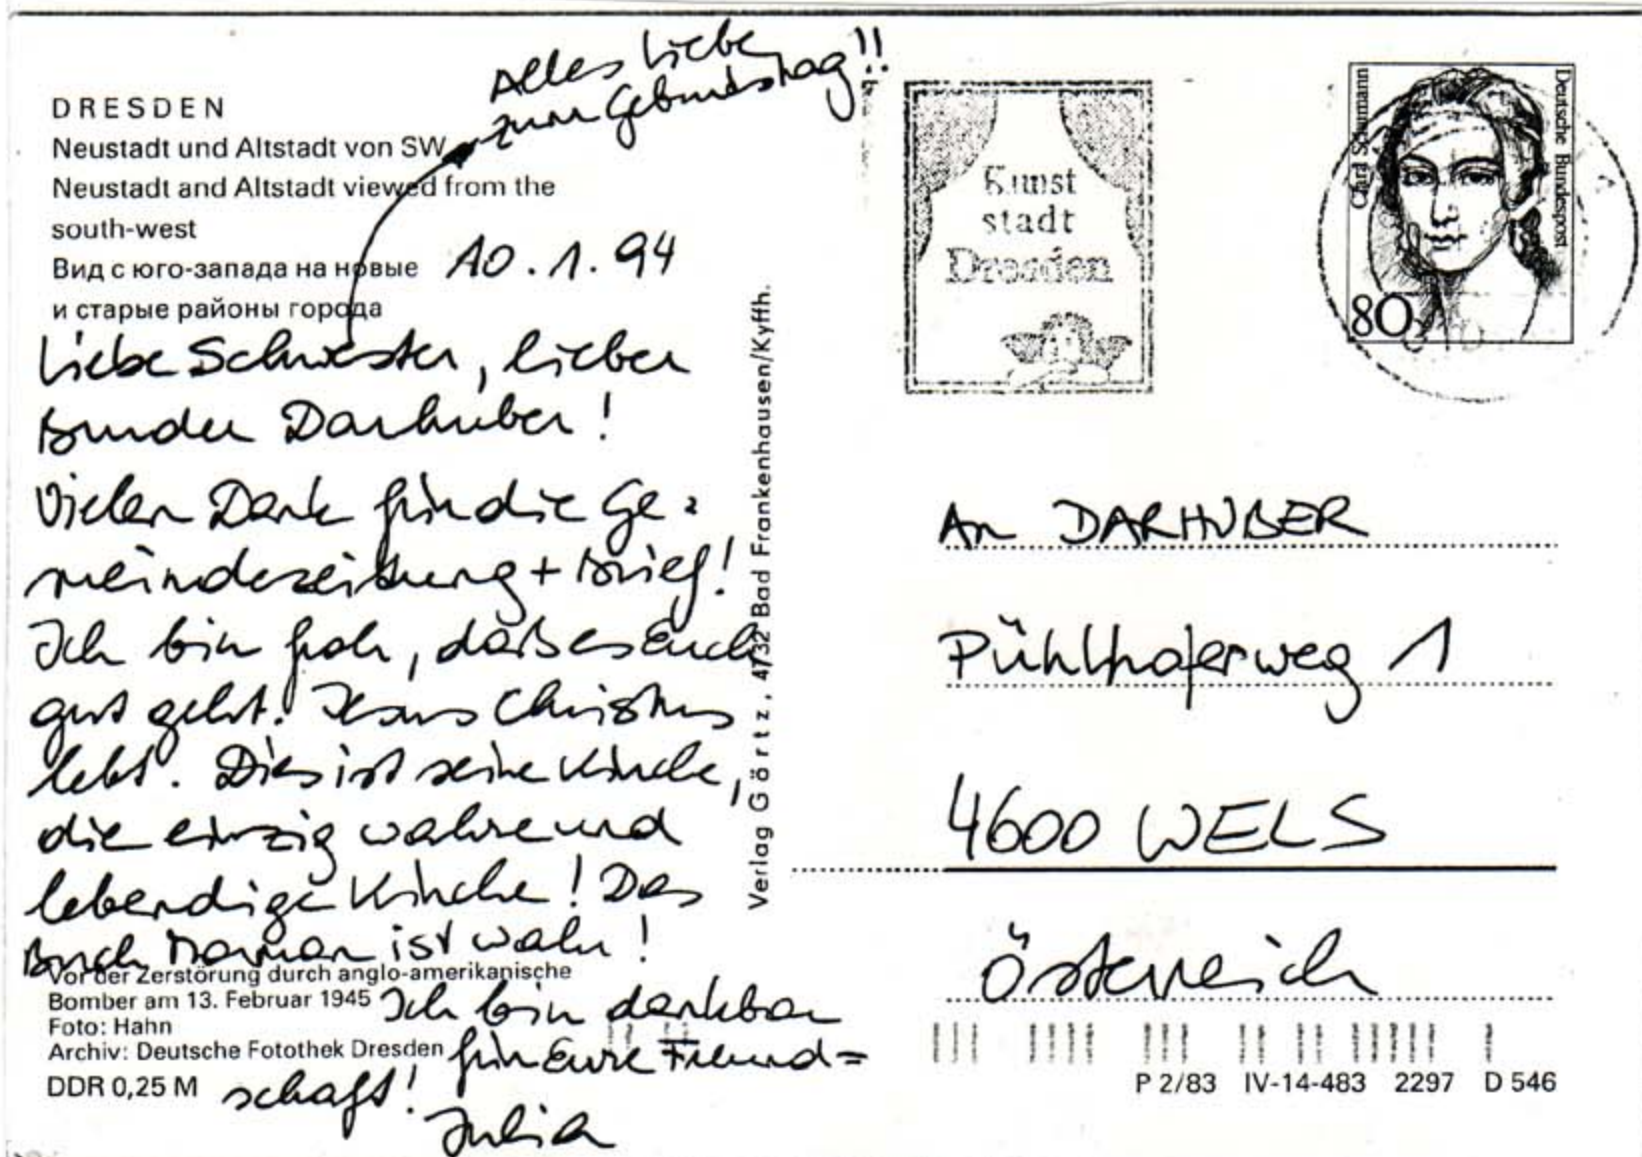 Alles Liebe
zum Geburtstag!!
DRESDEN
Neustadt und Altstadt von SW
Neustadt and Altstadt viewed from the
south-west
Вид с юго-запада на новые
и старые районы города
10.1.94
Liebe Schwester, lieber
Bruder Darhuber!
Vielen Dank für die Ge=
meindezeitung + Brief!
Ich bin froh, daß es Euch
gut geht. Jesus Christus
lebt. Dies ist seine Kirche,
die einzig wahre und
lebendige Kirche! Das
Buch Mormon ist wahr!
Vor der Zerstörung durch anglo-amerikanische
Bomber am 13. Februar 1945
Foto: Hahn
Archiv: Deutsche Fotothek Dresden
DDR 0,25 M
Ich bin dankbar
für Eure Freund=
schaft!
Julia
Verlag Görtz, 4732 Bad Frankenhausen/Kyffh.
Kunst
stadt
Dresden
Clara Schumann
Deutsche Bundespost
80
An DARHUBER
Pühlhoferweg 1
4600 WELS
Österreich
P 2/83 IV-14-483 2297 D 546